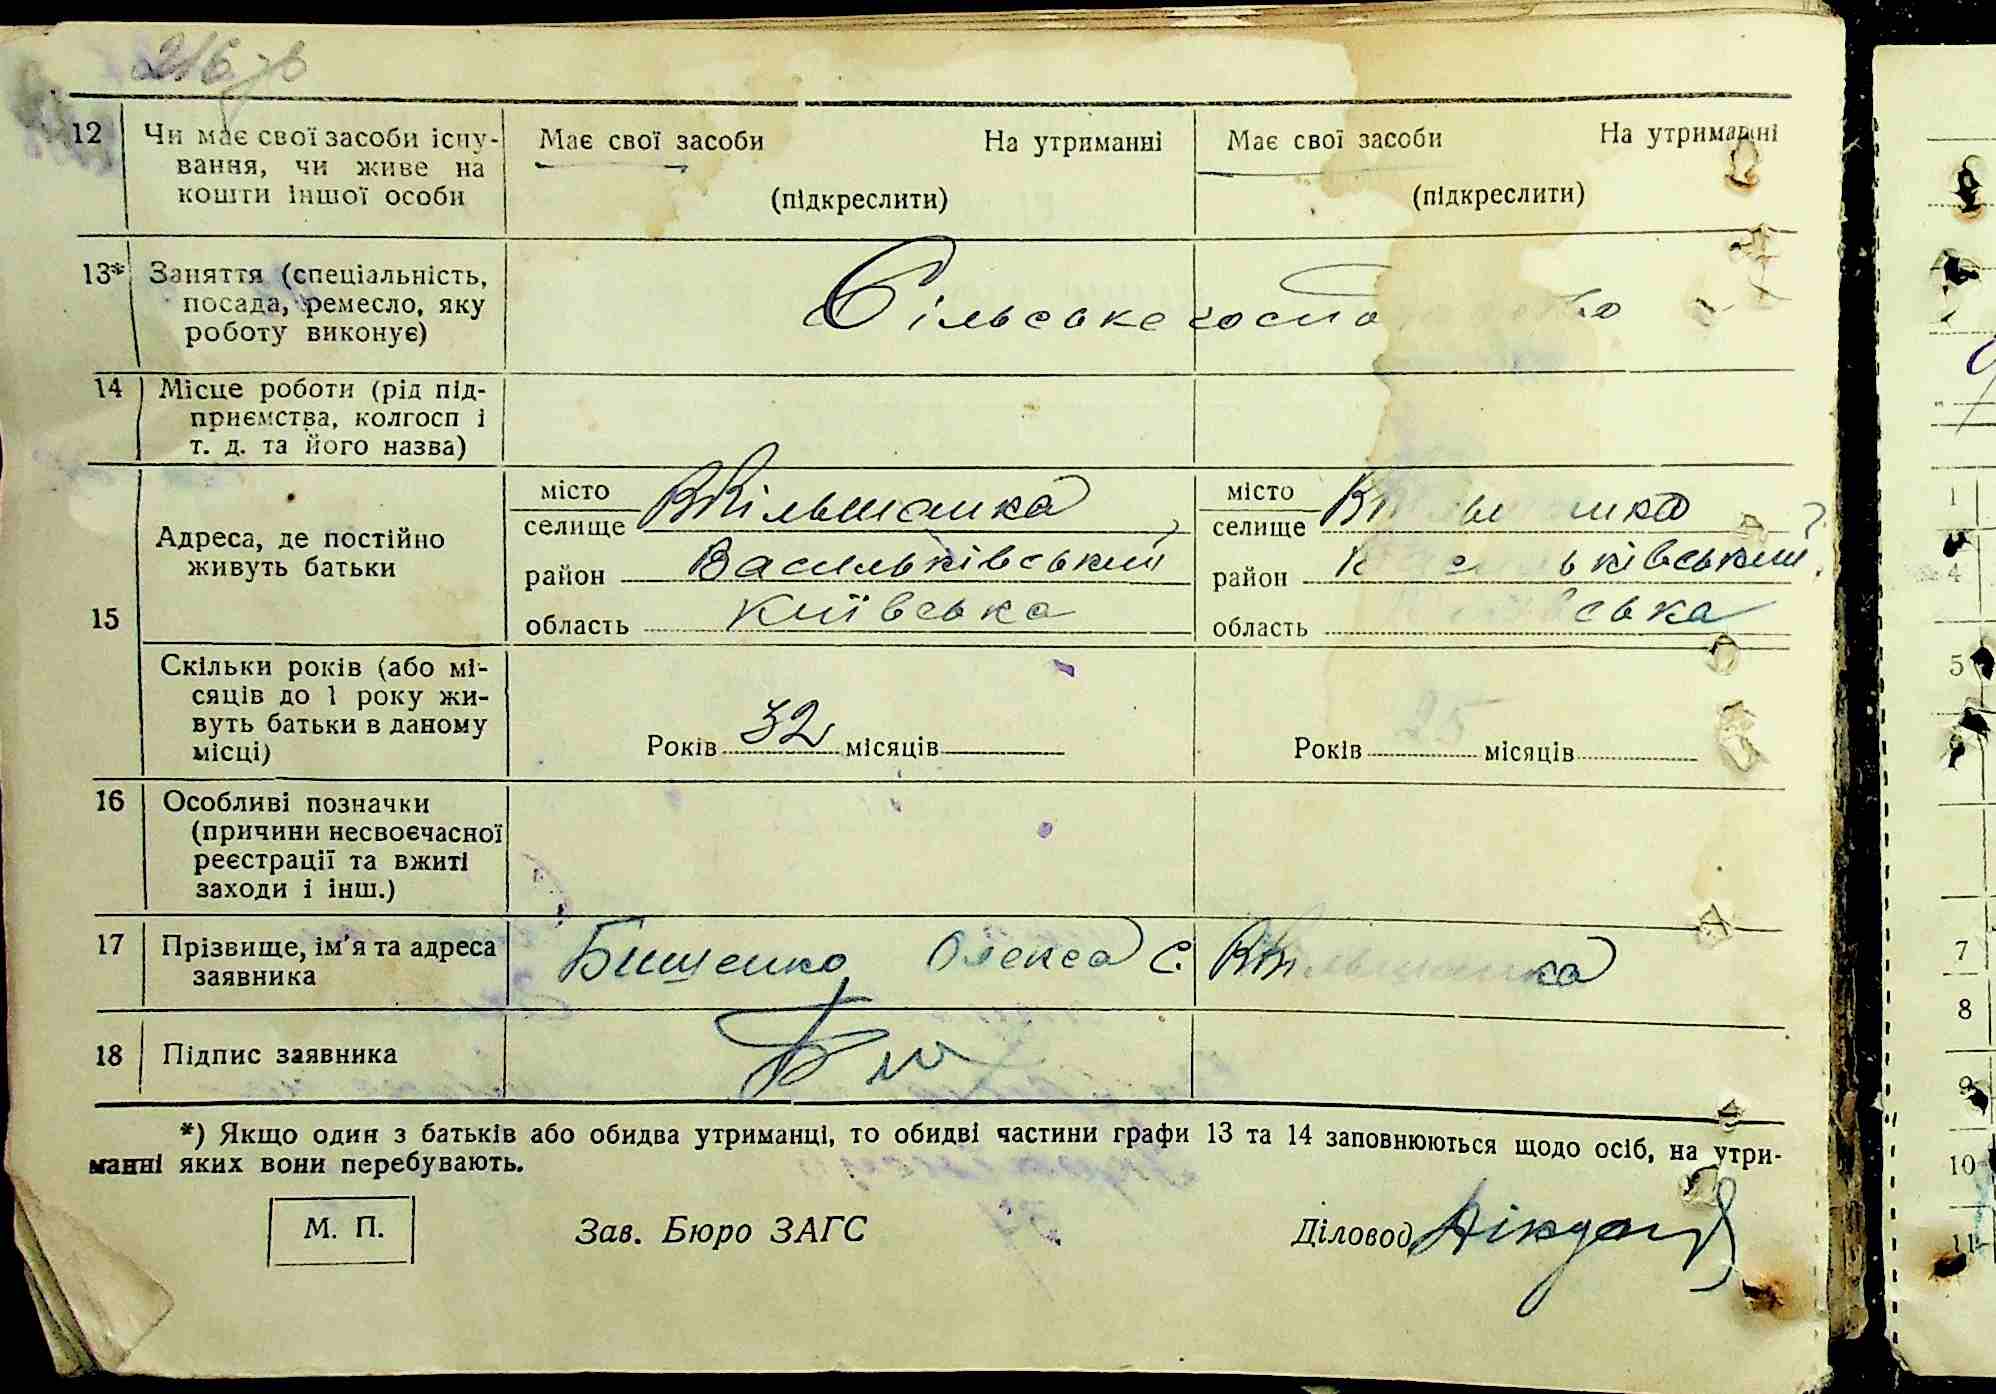 216 зв
12 Чи має свої засоби існу-
вання, чи живе на
кошти іншої особи
Має свої засоби На утриманні
(підкреслити)
Має свої засоби На утриманні
(підкреслити)
13* Заняття (спеціальність,
посада, ремесло, яку
роботу виконує)
Сільське
14 Місце роботи (рід під-
приємства, колгосп і
т. д. та його назва)
15
Адреса, де постійно
живуть батьки
місто
селище ВВільшанка
район Васильківський
область Київська
місто
селище
район
область
Скільки років (або мі-
сяців до 1 року жи-
вуть батьки в даному
місці)
Років 32 місяців
Років 25 місяців
16 Особливі позначки
(причини несвоєчасної
реєстрації та вжиті
заходи і інш.)
17 Прізвище, ім'я та адреса
заявника
Бищенко Олекса С. ВВільшанка
18 Підпис заявника
*) Якщо один з батьків або обидва утриманці, то обидві частини графи 13 та 14 заповнюються щодо осіб, на утри-
манні яких вони перебувають.
М. П. Зав. Бюро ЗАГС Діловод
1
4
5
7
8
9
10
11